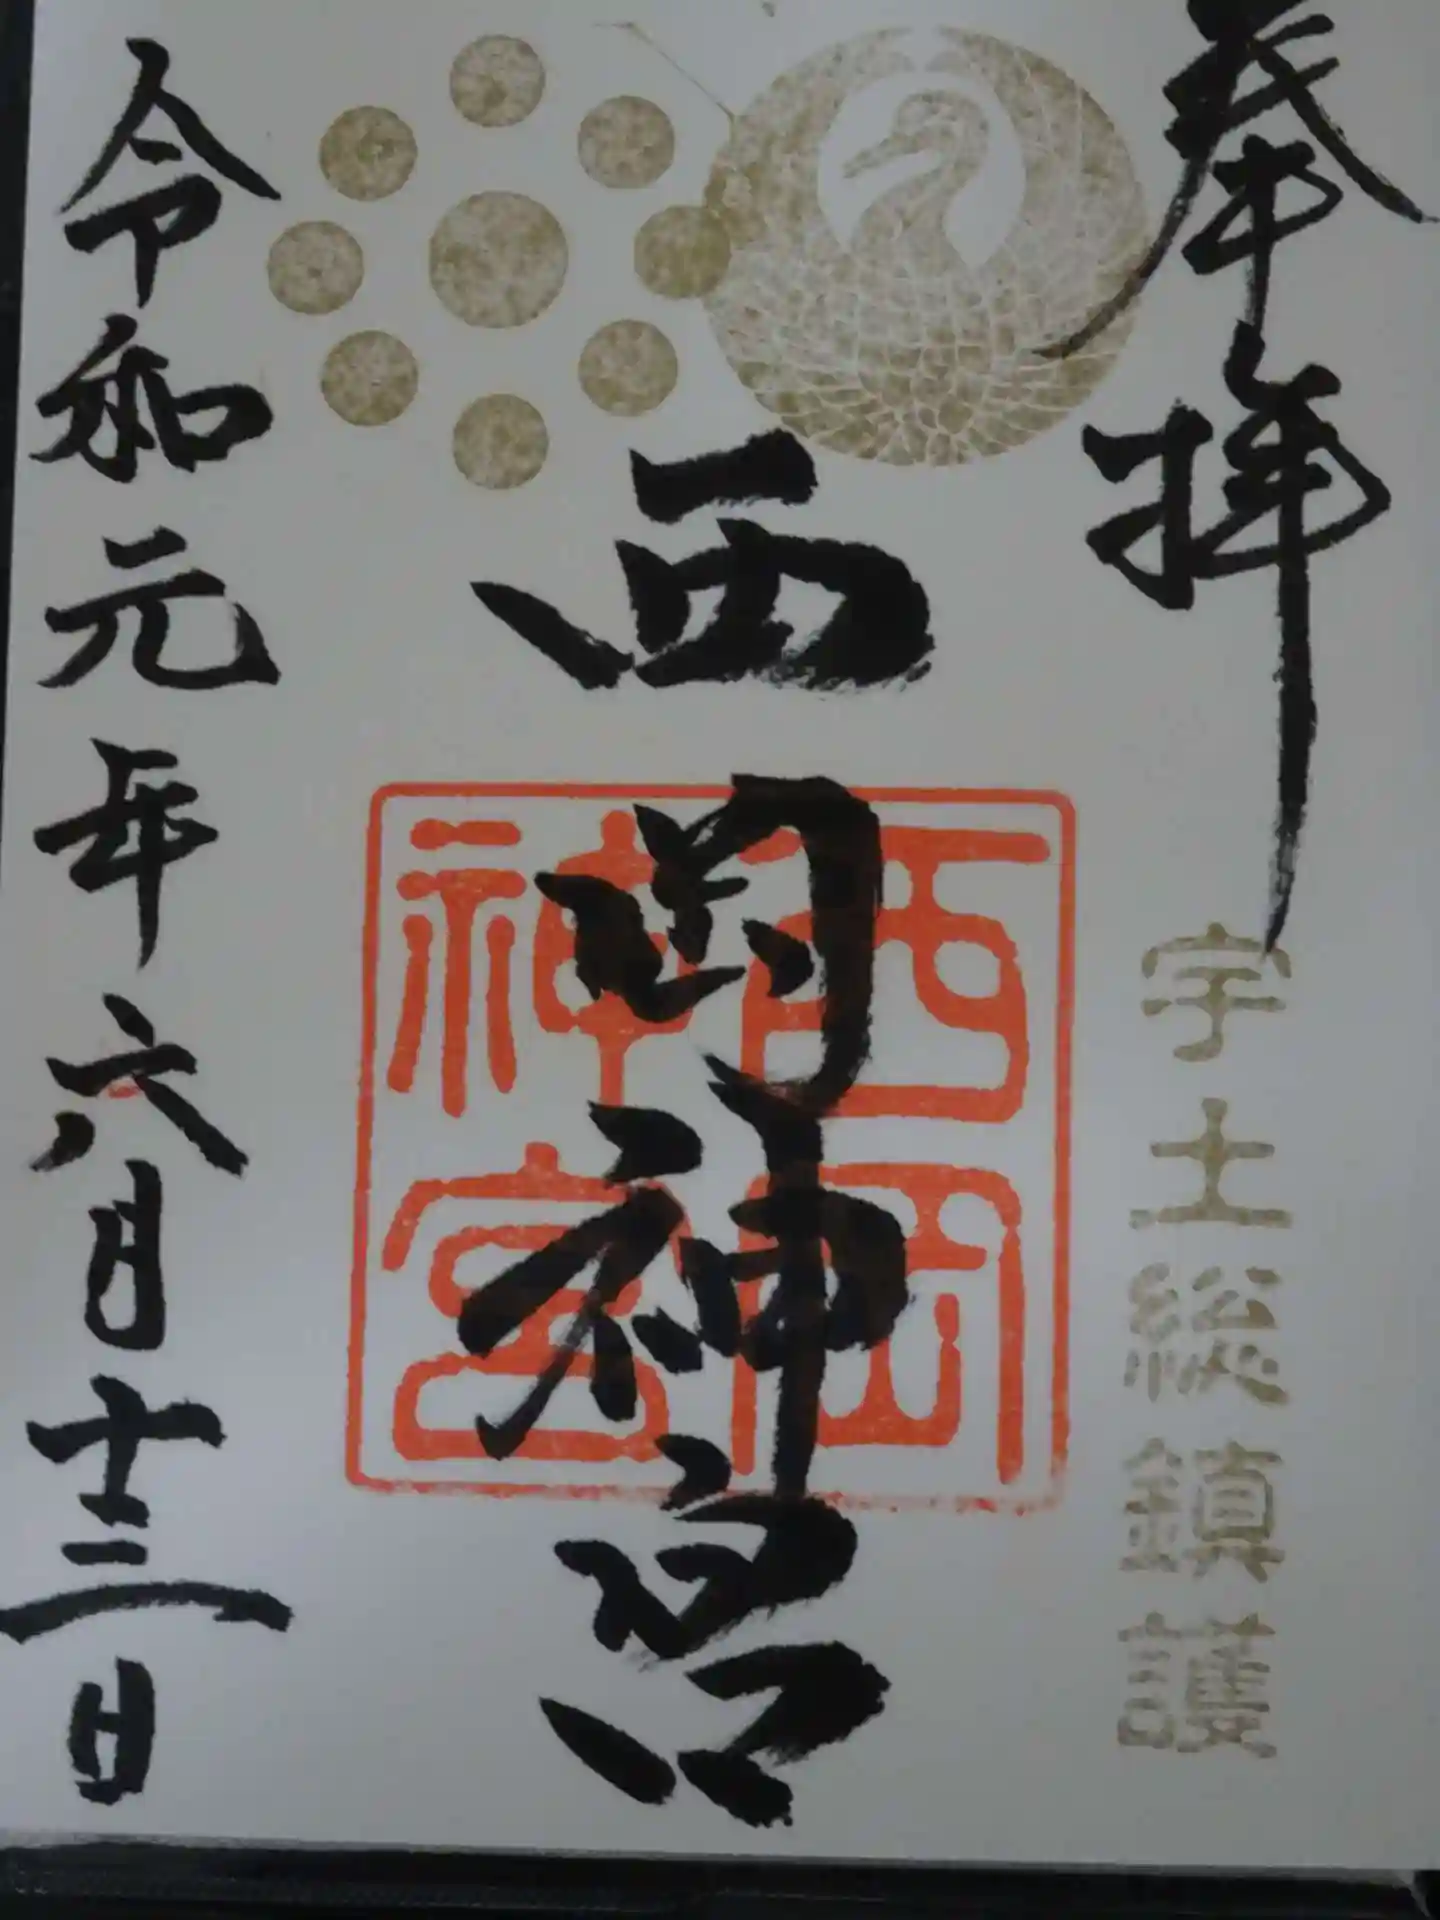 奉拝
宇土総鎮護
西岡神宮
西岡
神宮
令和元年六月十三日